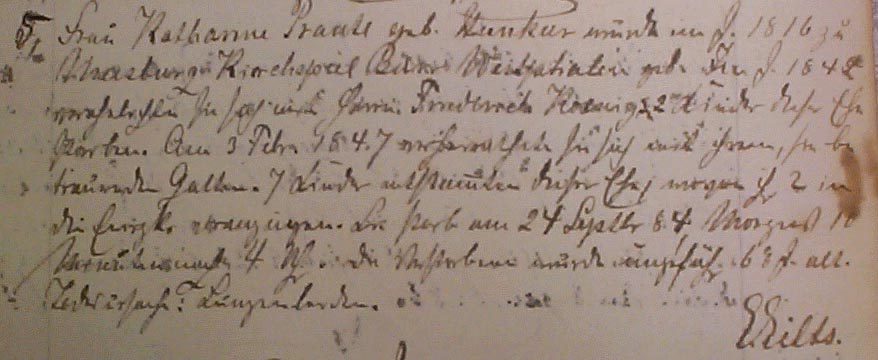 Frau Katharine Praale geb. Hunker wurde im J. 1816 zu
Kirchspiel Buer Westphalen geb. Im J. 1842
verehelichte sie sich mit Herrn Friedrich Koenig 2 Kinder dieser Ehe
starben. Am 3 Febr. 1847 verheirathete sie sich mit ihrem, sie be
trauernden Gatten. 7 Kinder entstammten dieser Ehe, wovon ihr 2 in
die Ewigk. vorangingen. Sie starb am 24 Septbr 84 Morgens 10
Minuten nach 4 Uhr. Die Verstorbene wurde ungefähr 68 J. alt.
Todesursache: Lungenleiden.
E. Eilts.